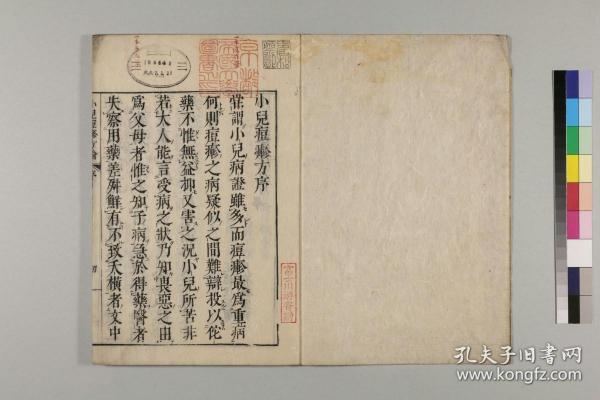 小兒痘瘮方序
嘗謂小兒病證雖多而痘瘮最爲重病
何則痘瘮之病疑似之間難辯投以佗
藥不惟無益抑又害之況小兒所苦非
若大人能言受病之狀乃知畏惡之由
爲父母者惟之知子病急於得藥醫者
失察用藥差舛鮮有不致夭橫者文中
小兒痘瘮方
孔夫子旧书网
www.kongfz.com